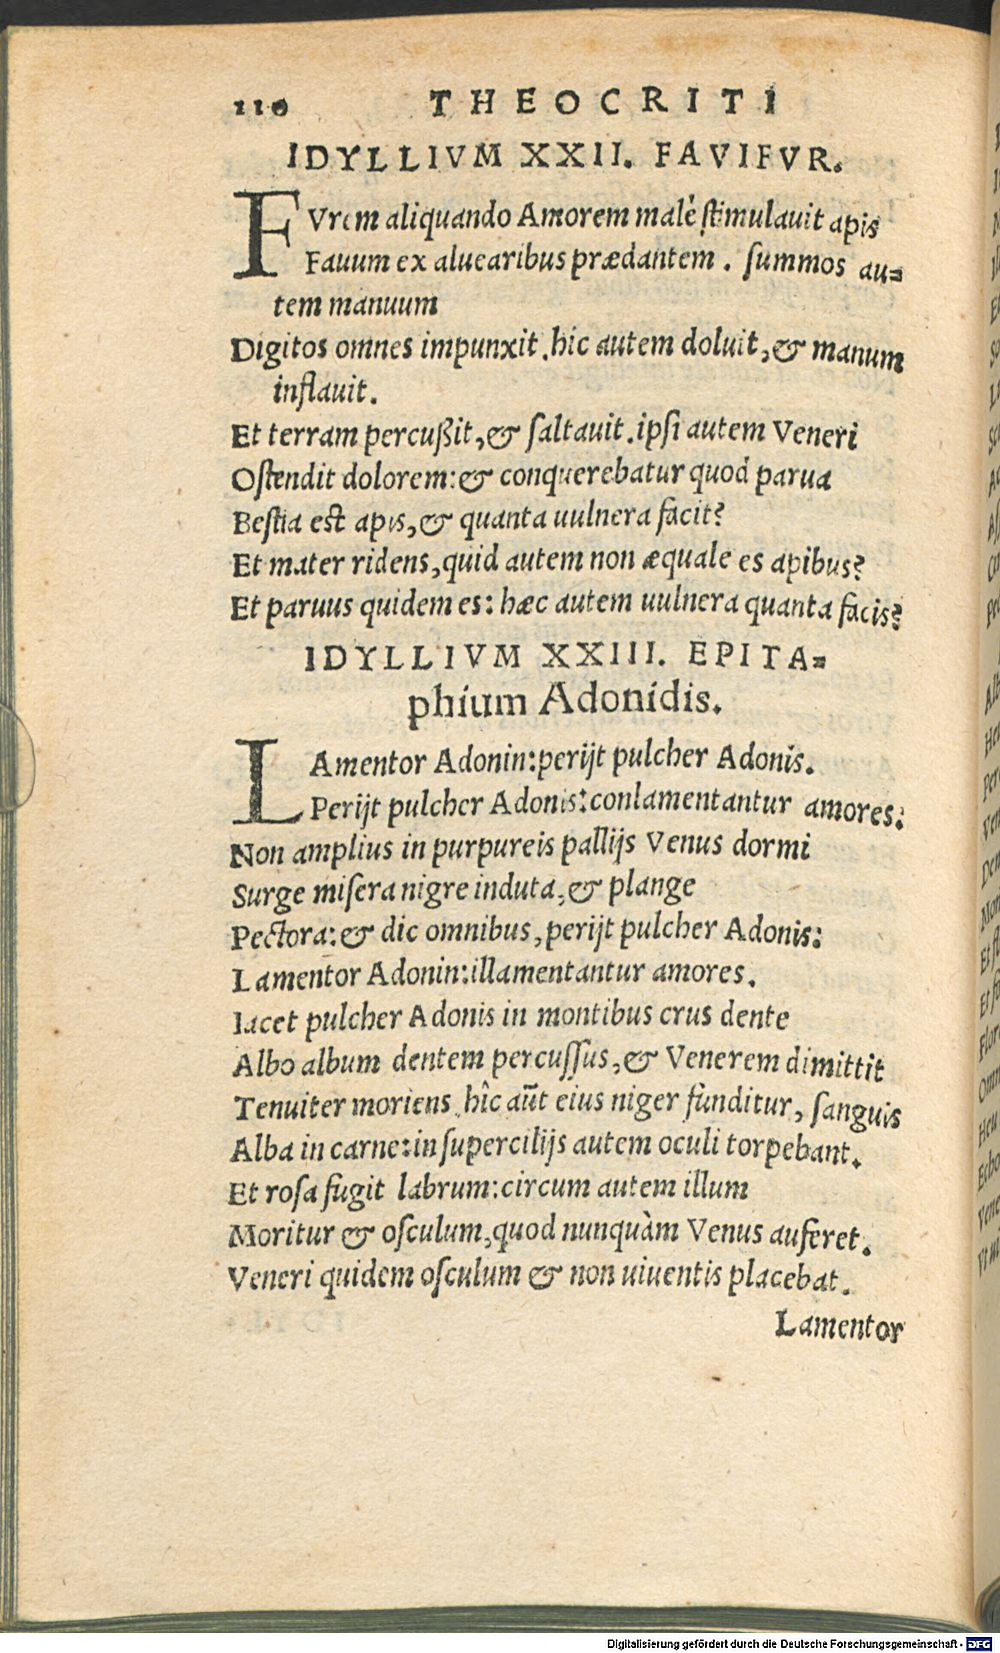 110 THEOCRITI
IDYLLIVM XXII. FAVIFVR.
FVrem aliquando Amorem malè stimulauit apis
Fauum ex aluearibus prædantem. summos au=
tem manuum
Digitos omnes impunxit. hic autem doluit, & manum
inflauit.
Et terram percußit, & saltauit. ipsi autem Veneri
Ostendit dolorem: & conquerebatur quòd parua
Bestia est apis, & quanta uulnera facit?
Et mater ridens, quid autem non æquale es apibus?
Et paruus quidem es: hæc autem uulnera quanta facis?
IDYLLIVM XXIII. EPITA=
phium Adonidis.
LAmentor Adonin: perijt pulcher Adonis.
Perijt pulcher Adonis: conlamentantur amores:
Non amplius in purpureis pallijs Venus dormi
Surge misera nigre induta, & plange
Pectora: & dic omnibus, perijt pulcher Adonis:
Lamentor Adonin: illamentantur amores.
Iacet pulcher Adonis in montibus crus dente
Albo album dentem percussus, & Venerem dimittit
Tenuiter moriens. hîc aūt eius niger funditur, sanguis
Alba in carne: in supercilijs autem oculi torpebant.
Et rosa fugit labrum: circum autem illum
Moritur & osculum, quod nunquàm Venus auferet.
Veneri quidem osculum & non uiuentis placebat.
Lamentor
Digitalisierung gefördert durch die Deutsche Forschungsgemeinschaft - DFG